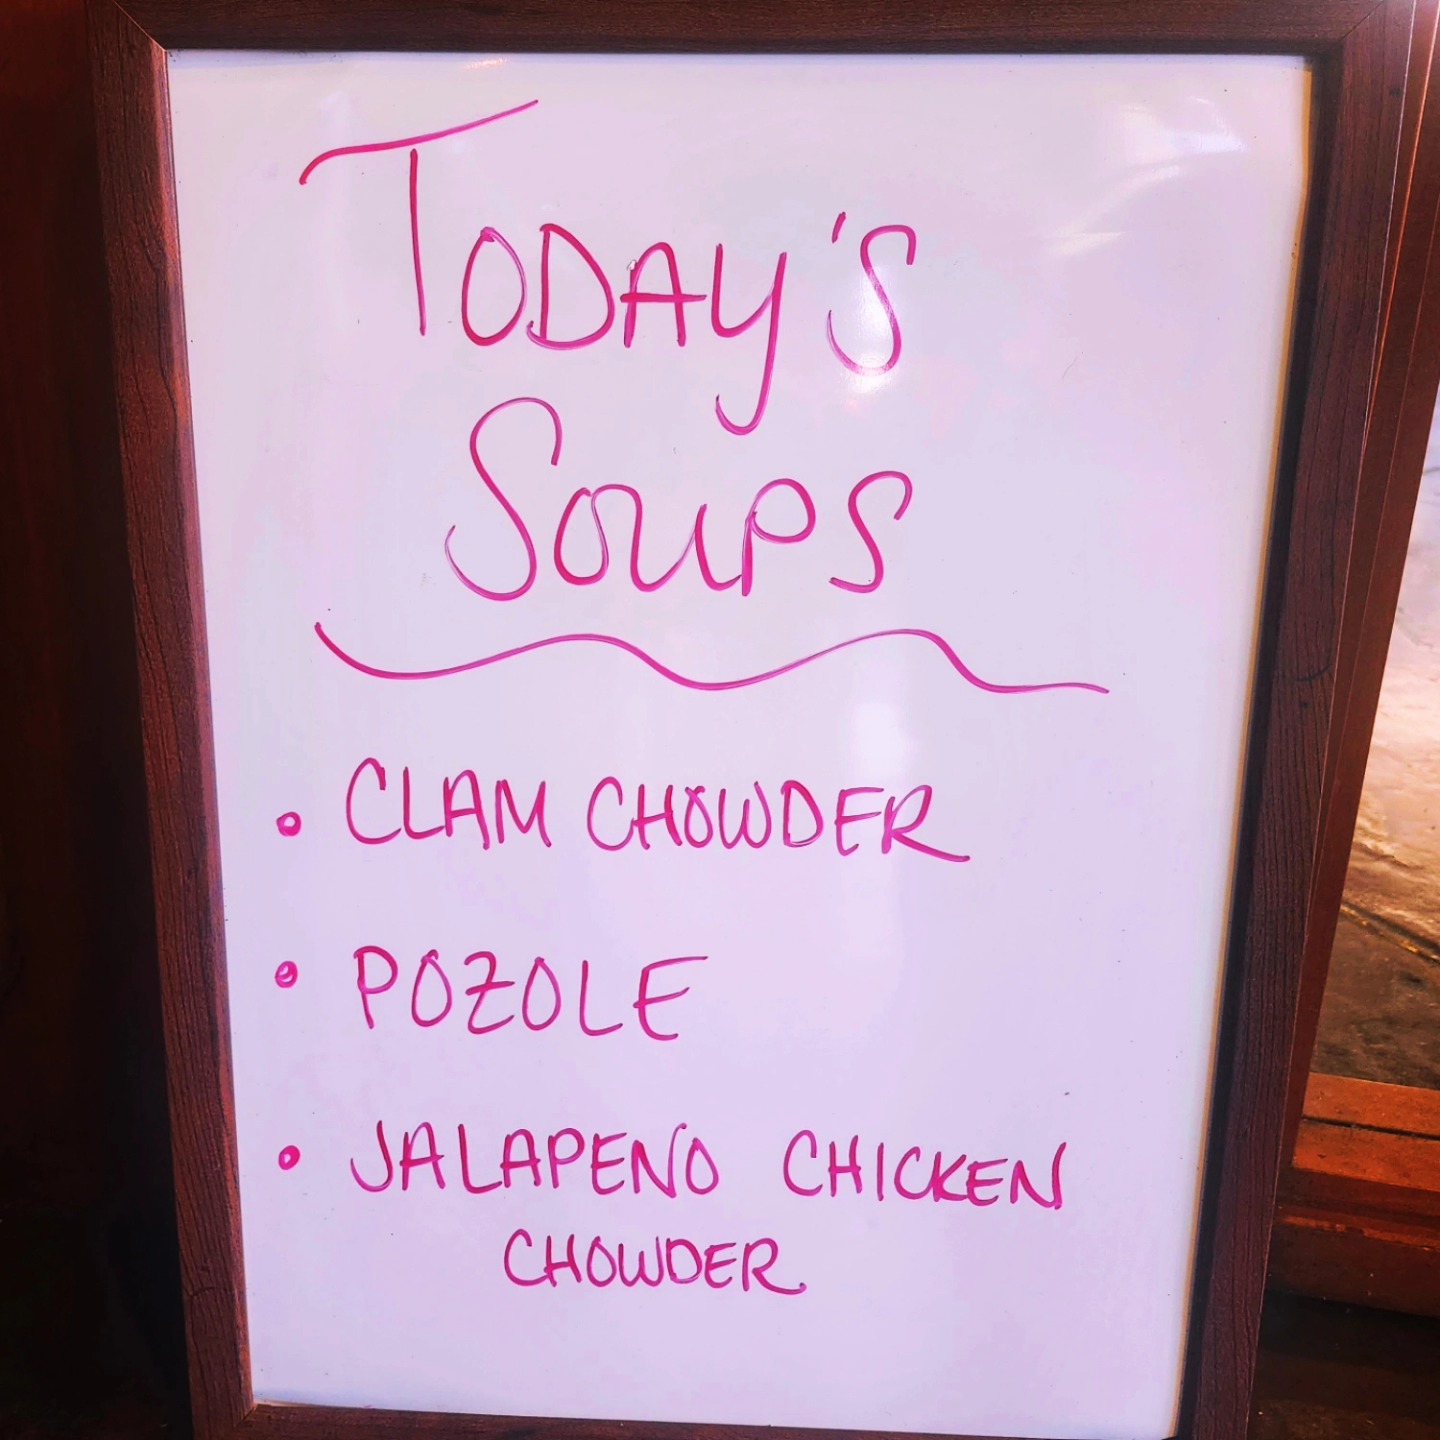 TODAY'S
SOUPS
• CLAM CHOWDER
• POZOLE
• JALAPENO CHICKEN
CHOWDER